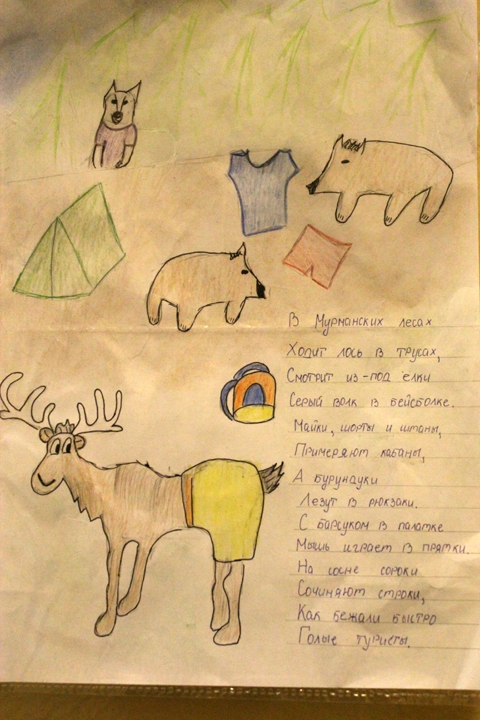 В Мурманских лесах
Ходит лось в трусах,
Смотрит из-под ёлки
Серый волк в бейсболке.
Майки, шорты и штаны,
Примеряют кабаны,
А бурунауки
Лезут в рюкзаки.
С барсуком в палатке
Мышь играет в прятки.
На сосне сороки
Сочиняют строки,
Как бежали быстро
Голые туристы.